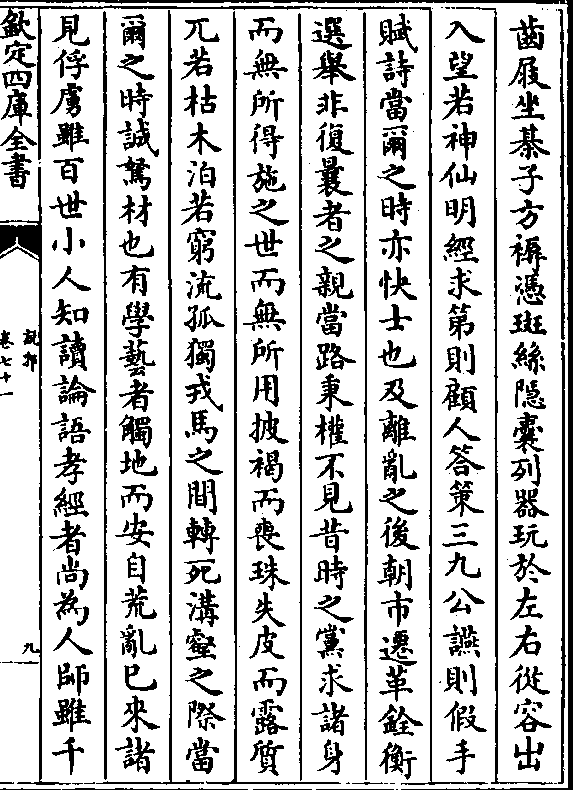 齒屐坐棊子方褥憑斑絲隱囊列器玩於左右從容出
入望若神仙明經求第則顧人答策三九公讌則假手
賦詩當爾之時亦快士也及離亂之後朝市遷革銓衡
選舉非復曩者之親當路秉權不見昔時之黨求諸身
而無所得施之世而無所用披褐而喪珠失皮而露質
兀若枯木泊若窮流孤獨戎馬之間轉死溝壑之際當
爾之時誠駑材也有學藝者觸地而安自荒亂已來諸
見俘虜雖百世小人知讀論語孝經者尚為人師雖千
欽定四庫全書
說郛
卷七十一
九